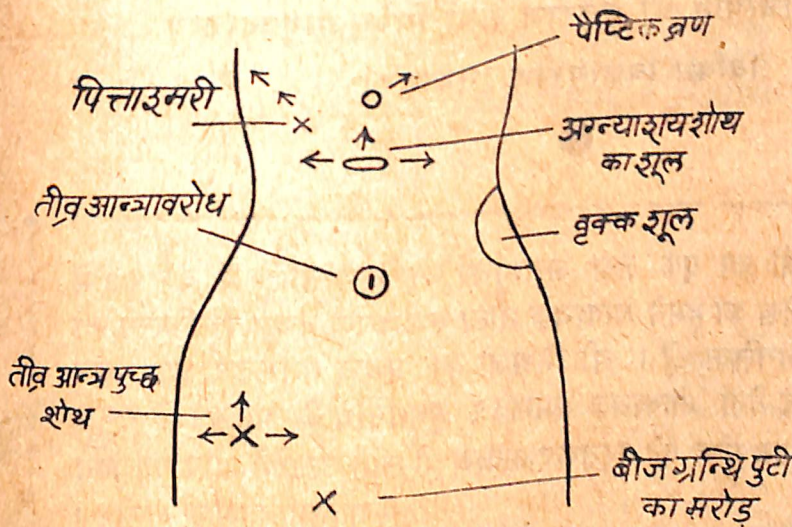 पैप्टिक व्रण
पित्ताश्मरी
अग्न्याशय शोथ
का शूल
तीव्र आन्त्रावरोध
वृक्क शूल
तीव्र आन्त्र पुच्छ
शोथ
बीज ग्रन्थि पुटी
का मरोड़